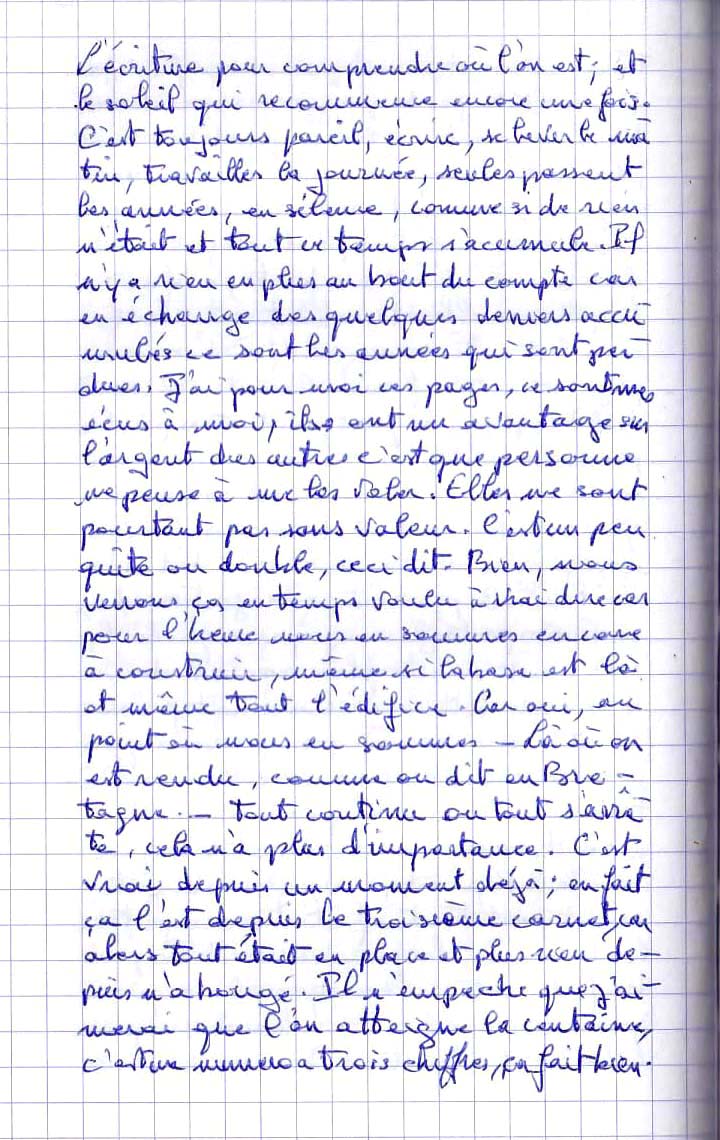 L'écriture pour comprendre où l'on est; et
le soleil qui recommence encore une fois.
C'est toujours pareil, écrire, se lever le ma
tin, travailler la journée, seules passent
les années, en silence, comme si de rien
n'était et tout ce temps s'accumule. Il
n'y a rien en plus au bout du compte car
en échange des quelques deniers accu
mulés ce sont les années qui sont per
dues. J'ai pour moi ces pages, ce sont mes
écus à moi, ils ont un avantage sur
l'argent des autres c'est que personne
ne pense à me les voler. Elles ne sont
pourtant pas sans valeur. C'est un peu
quitte ou double, ceci dit. Bien, nous
verrons ça en temps voulu à vrai dire car
pour l'heure nous en sommes encore
à construire, même si la base est là
et même tout l'édifice. Car oui, au
point où nous en sommes – Là où on
est rendu, comme on dit en Bre-
tagne. – tout continue ou tout s'arrê
te, cela n'a plus d'importance. C'est
vrai depuis un moment déjà; en fait
ça l'est depuis le troisième carnet, car
alors tout était en place et plus rien de-
puis n'a bougé. Il n'empêche que j'ai-
merai que l'on atteigne la centaine,
c'est un numero a trois chiffres, ça fait bien.